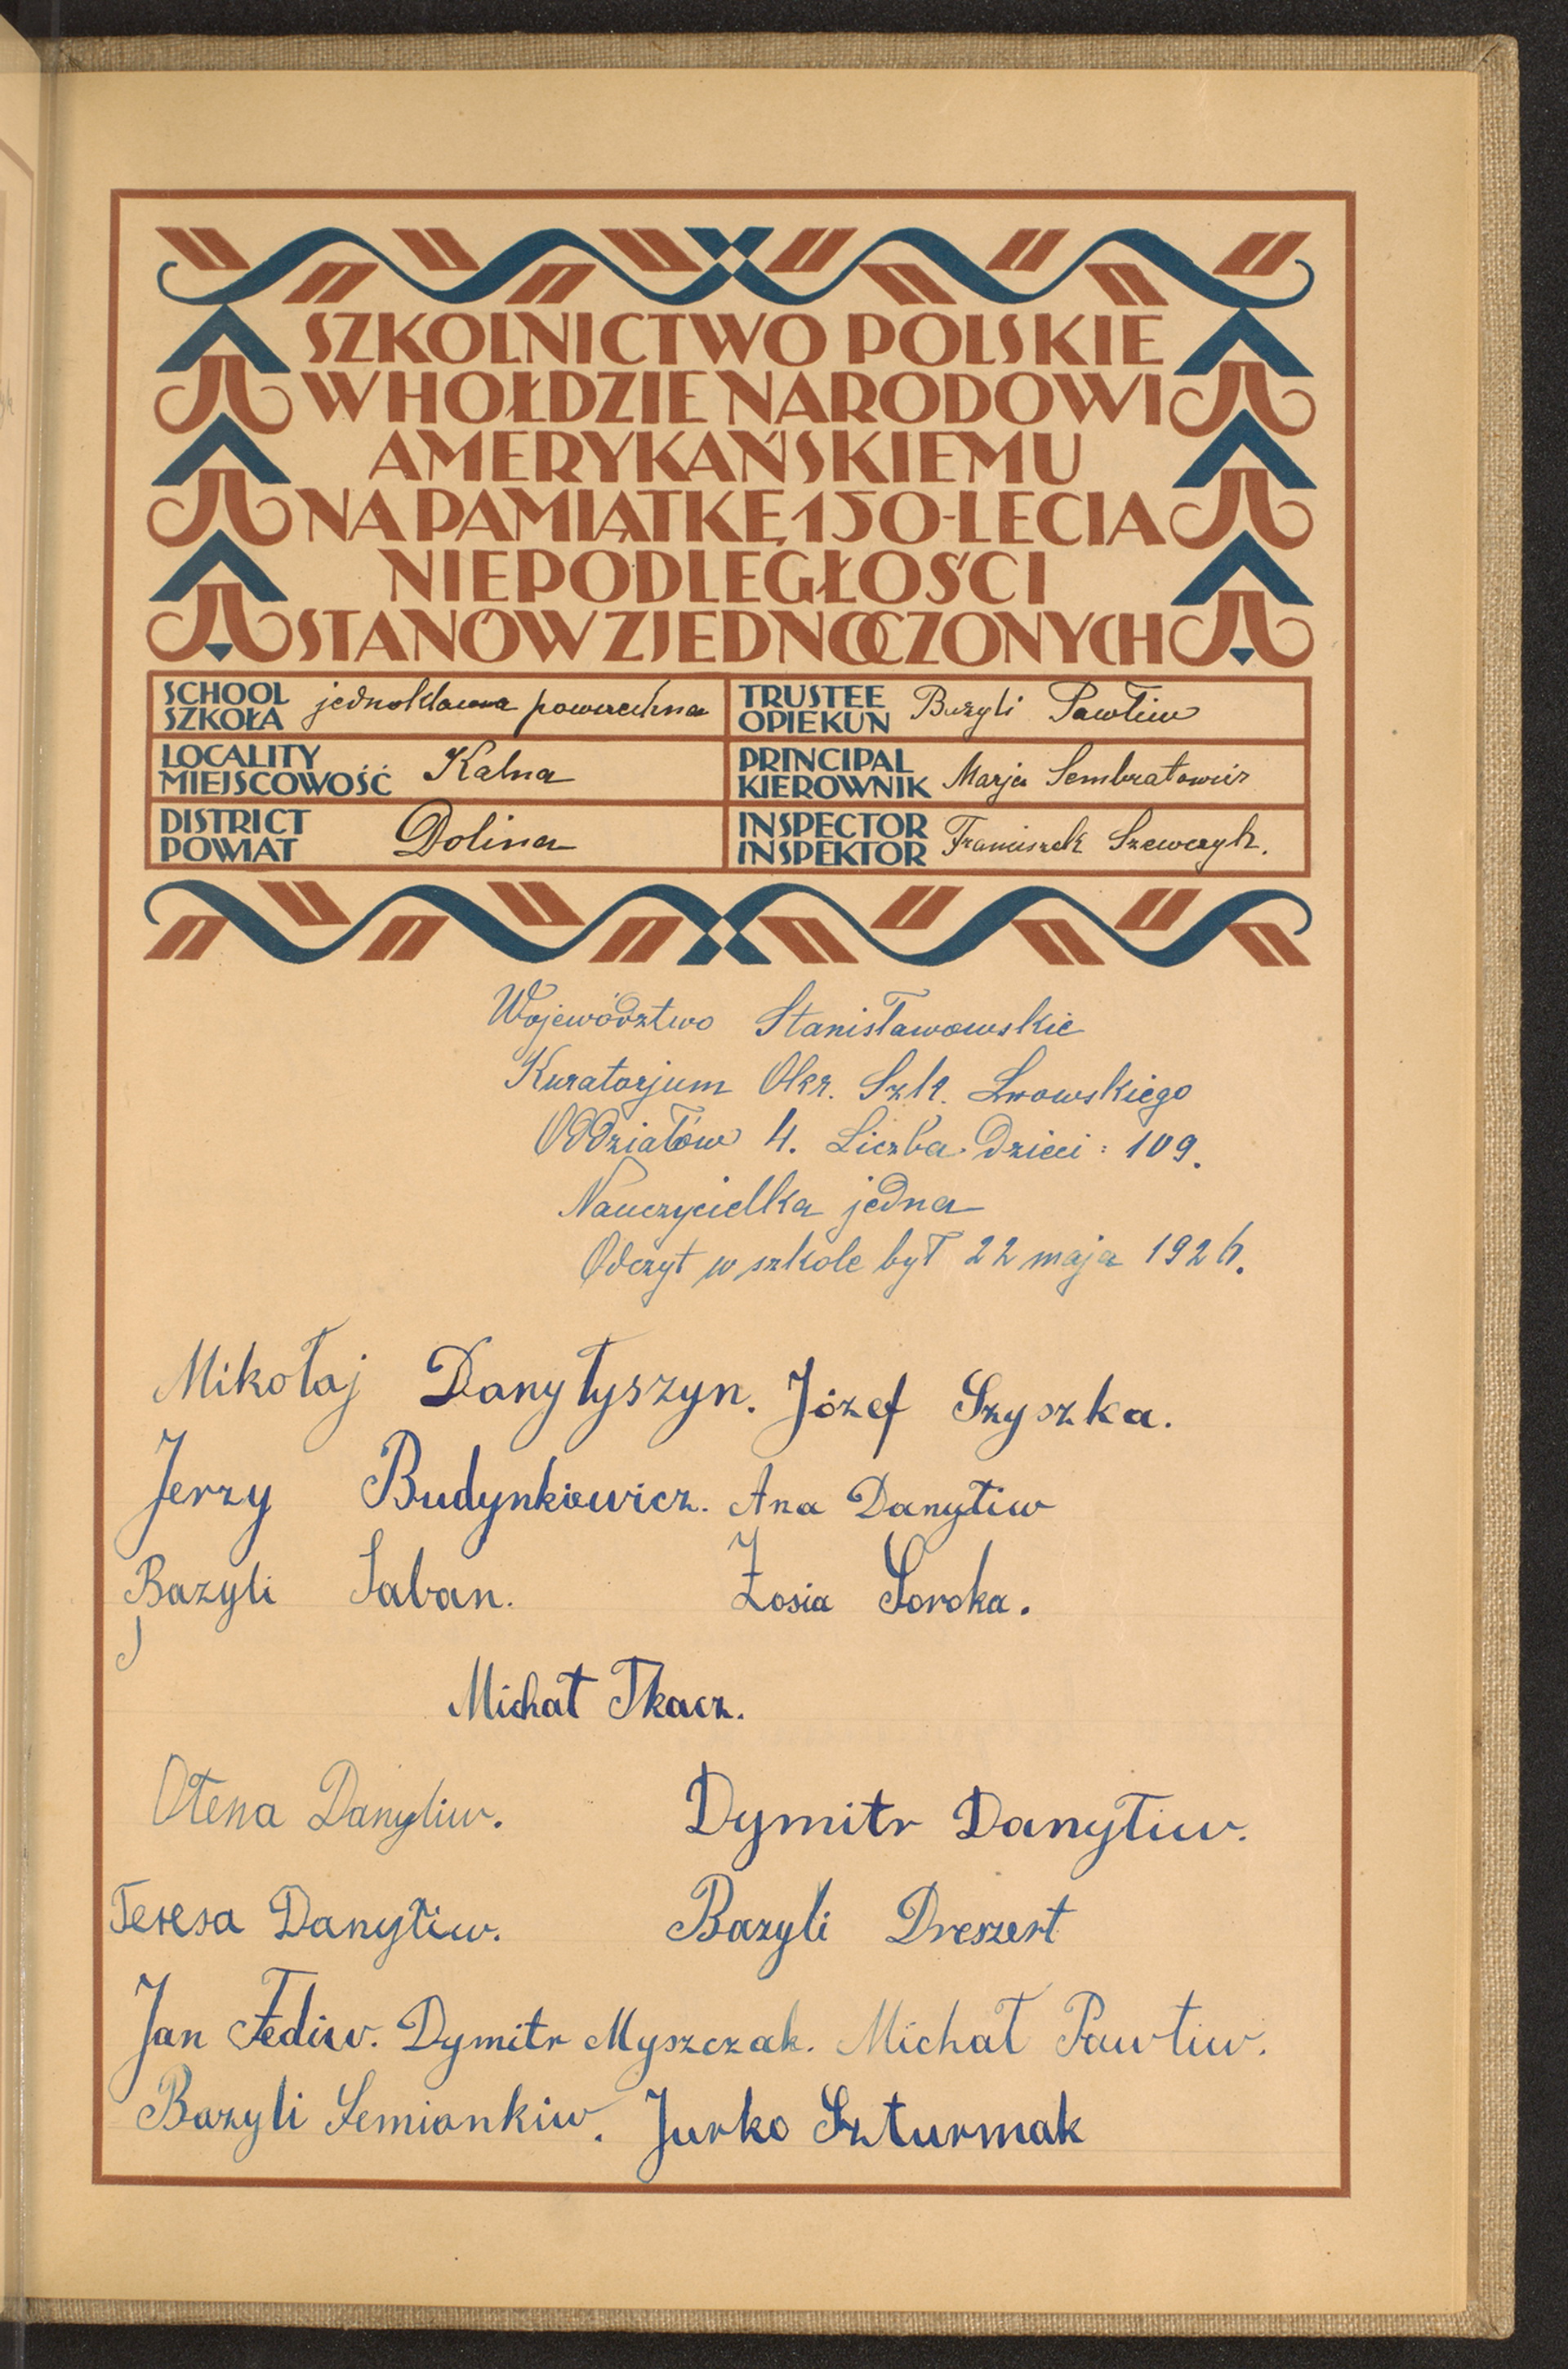 SZKOLNICTWO POLSKIE
W HOŁDZIE NARODOWI
AMERYKAŃSKIEMU
NA PAMIĄTKĘ 150-LECIA
NIEPODLEGŁOŚCI
STANÓW ZJEDNOCZONYCH
SCHOOL
SZKOŁA jednoklasowa powszechna
TRUSTEE
OPIEKUN Bazyli Pawłiw
LOCALITY
MIEJSCOWOŚĆ Kalna
PRINCIPAL
KIEROWNIK Marja Sembratowicz
DISTRICT
POWIAT Dolina
INSPECTOR
INSPEKTOR Franciszek Szewczyk.
Województwo Stanisławowskie
Kuratorjum Okr. Szk. Lwowskiego
Oddziałów 4. Liczba Dzieci: 109.
Nauczycielka jedna
Odczyt w szkole był 22 maja 1926.
Mikołaj Danyłyszyn. Józef Szyszka.
Jerzy Budynkiewicz. Ana Danyłiw
Bazyli Saban. Zosia Soroka.
Michał Tkacz.
Ołena Danyliw. Dymitr Danyłiw.
Teresa Danyłiw. Bazyli Dreszert
Jan Fediw. Dymitr Myszczak. Michał Pawłiw.
Bazyli Semionkiw. Jurko Szturmak